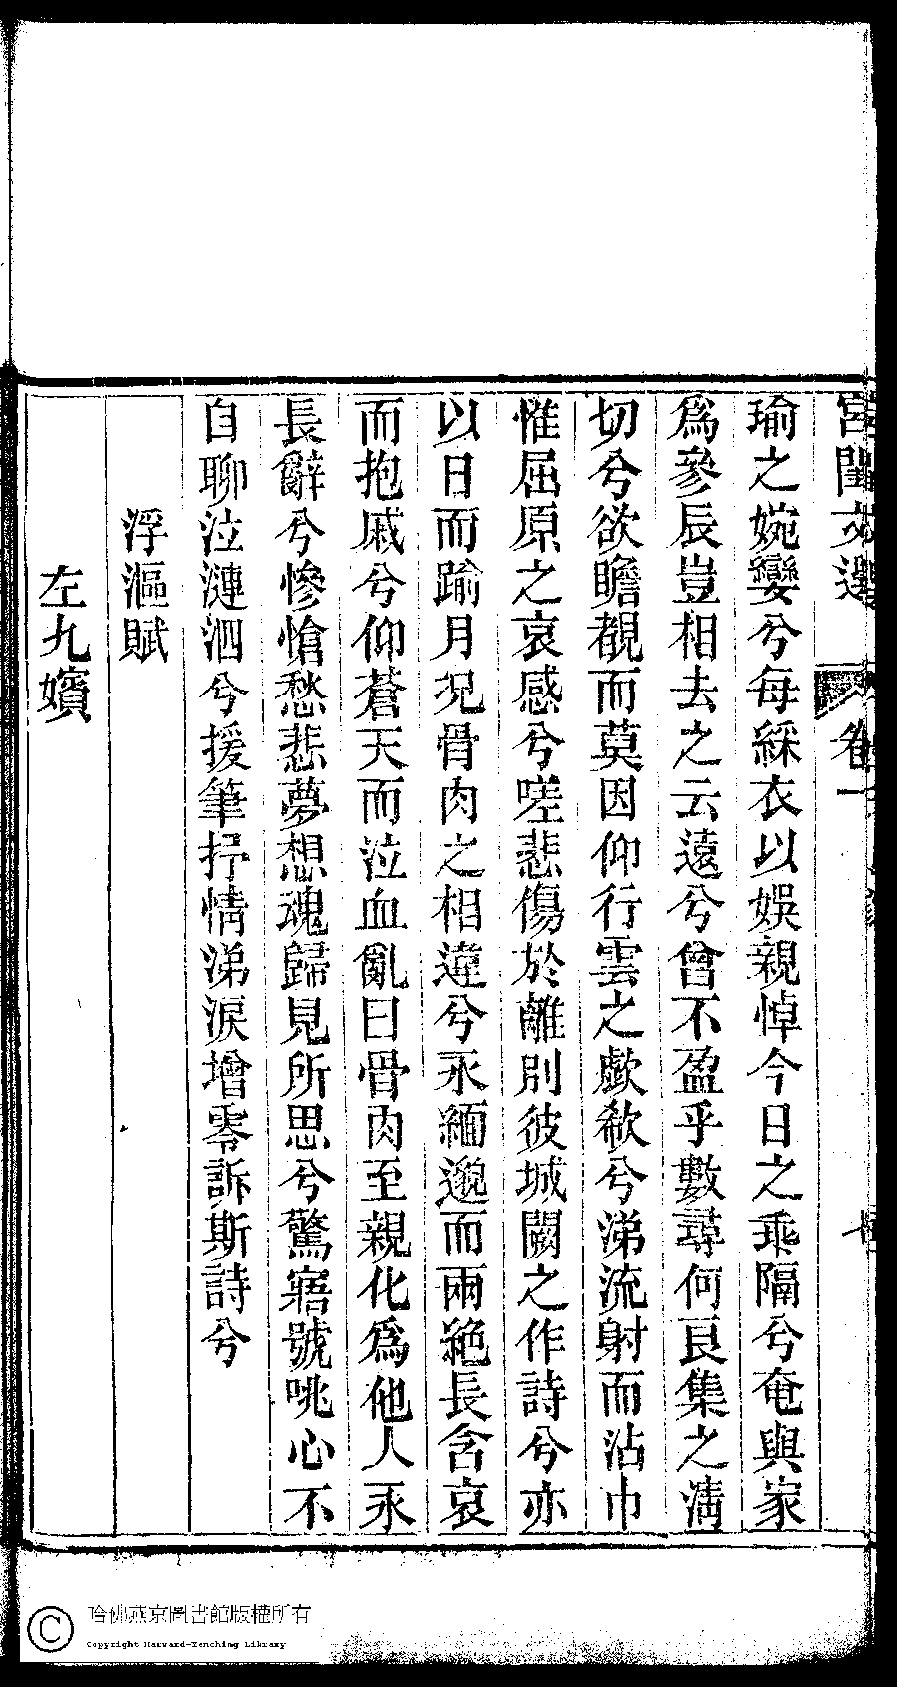 宮閨文選 卷一
瑜之婉孌兮每綵衣以娛親悼今日之乖隔兮奄與家
爲參辰豈相去之云遠兮曾不盈乎數尋何艮集之淸
切兮欲瞻覩而莫因仰行雲之歔欷兮涕流射而沾巾
惟屈原之哀感兮嗟悲傷於離別彼城闕之作詩兮亦
以日而踰月况骨肉之相違兮永緬邈而兩絶長含哀
而抱戚兮仰蒼天而泣血亂曰骨肉至親化爲他人永
長辭兮慘愴愁悲夢想魂歸見所思兮驚寤號咷心不
自聊泣漣洏兮援筆抒情涕淚增零訴斯詩兮
浮漚賦
左九嬪
哈佛燕京圖書館版權所有
Copyright Harvard-Yenching Library